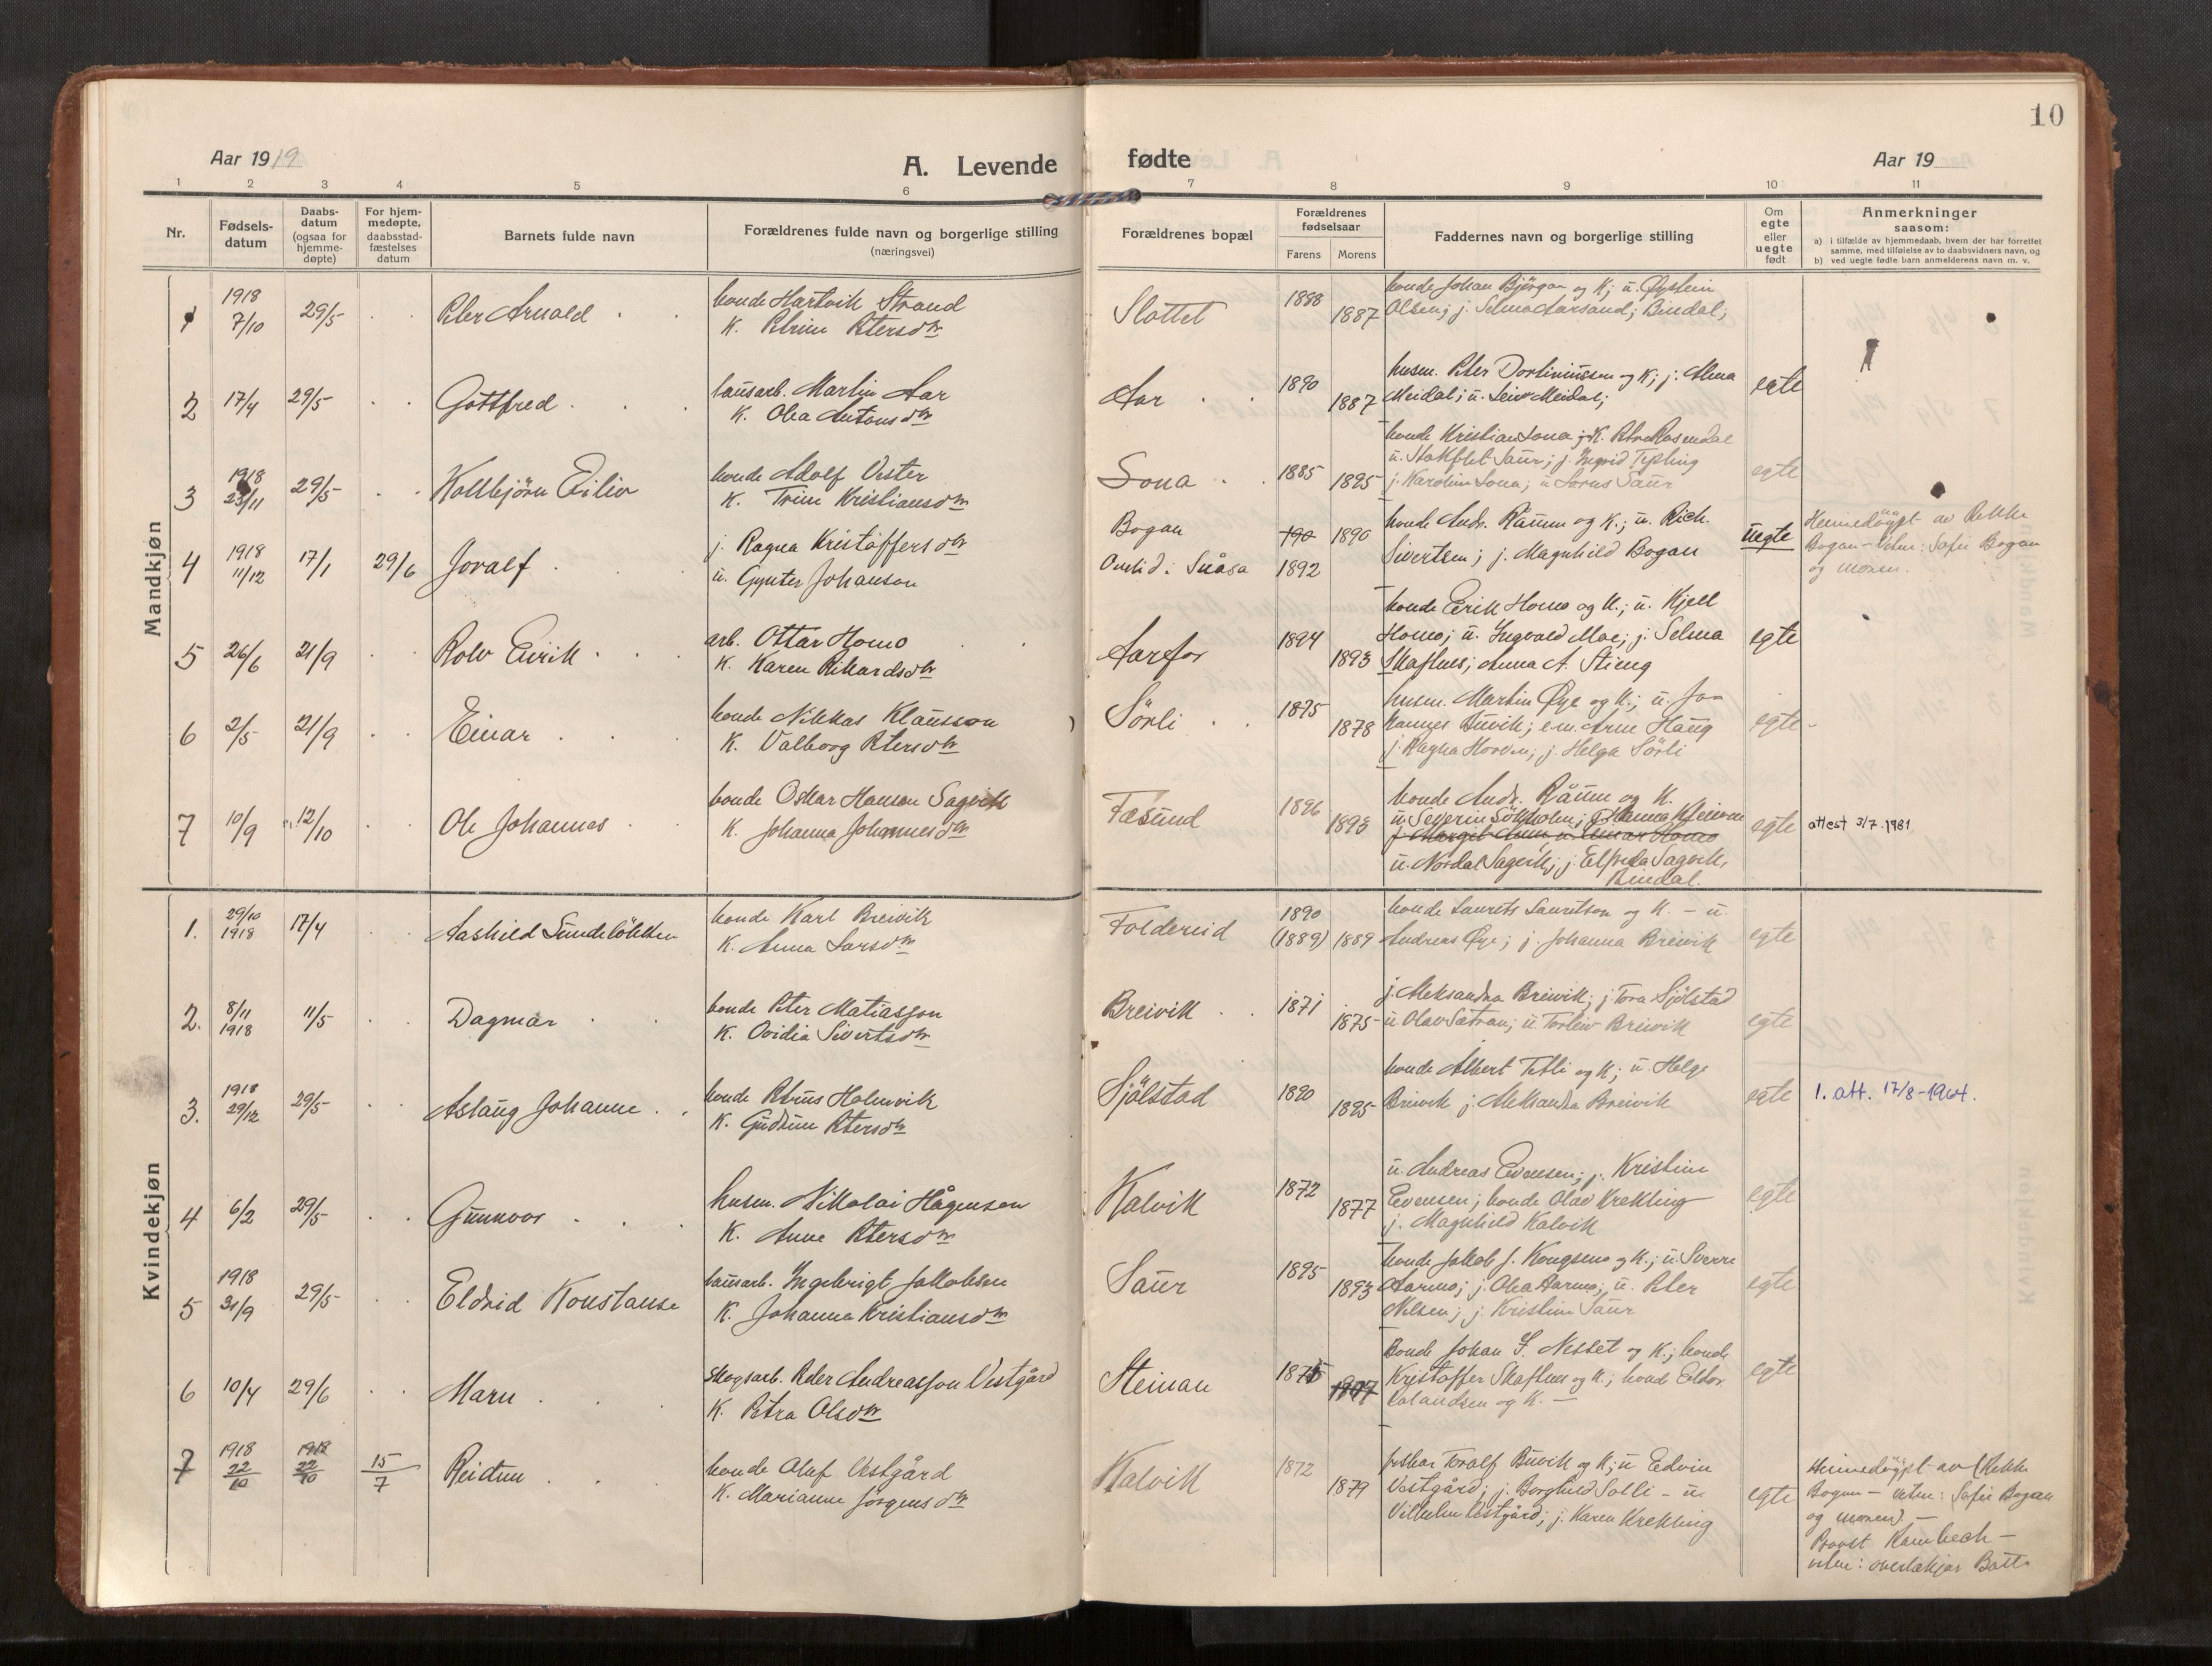 10
Aar 1919
A. Levende fødte
Aar 19
1 2 3 4 5 6 7 8 9 10 11
Nr.
Fødsels-
datum
Daabs-
datum
(ogsaa for
hjemme-
døpte)
For hjem-
medøpte,
daabsstad-
fæstelses
datum
Barnets fulde navn
Forældrenes fulde navn og borgerlige stilling
(næringsvei)
Forældrenes bopæl
Forældrenes
fødselsaar
Farens Morens
Faddernes navn og borgerlige stilling
Om
egte
eller
uegte
født
Anmerkninger
saasom:
a) i tilfælde av hjemmedaab, hvem der har forrettet
samme, med tilføielse av to daabsvidners navn, og
b) ved uegte fødte barn anmelderens navn m. v.
Mandkjøn
1 1918 7/10 29/5 Peter Arnold
bonde Hartvik Strand
K. Petrine Petersdtr
Slottet 1888 1887
bonde Johan Bjørgan og K; u. Øystein
Olsen; j. Selma Aarsand; Bindal;
2 17/4 29/5 Gottfred
lausarb. Martin Aar
K. Olea Antonsdtr
Aar 1890 1887
husm. Peter og K; j. Alma
Meidal; u. Leiv Meidal;
egte
3 1918 23/11 29/5 Kolbjörn Eiliv
bonde Adolf Vester
K. Trine Kristiansdtr
Lona 1885 1895
bonde Kristian Lona
u. Saur; j. Ingrid Tepling
j. Karoline Lona; u. Saur
egte
4 1918 11/12 17/1 29/6 Joralf
j. Ragna Kristoffersdtr
u. Gynter Johanson
Bogan
Snåsa
190 1890
1892
bonde Andr. Råum og K.; u. Rich.
Sivertsen; j. Magnhild Bogan
uegte
Heimedöypt av Rekke
Bogan - vitne: Sofie Bogan
og moren.
5 26/6 21/9 Rolv Eirik
arb. Ottar Homo
K. Karen Rikardsdtr
Aarfor 1894 1893
bonde Eirik Homo og K.; u. Kjell
Homo; u. Ingvald Moe; j. Selma
Skaflnes; Anna A. Stieng
egte
6 2/5 21/9 Einar
bonde Nikkas Klausson
K. Valborg Petersdtr
Sörli 1875 1878
husm. Martin Øye og K.; u. Jo-
hannes Buvik; e.m. Arne Haug
j. Ragna Horven; j. Helga Sörli
egte
7 10/9 12/10 Ole Johannes
bonde Oskar Hansen Sagvik
K. Johanna Johannesdtr
Fæsund 1896 1893
bonde Andr. Råum og K.
u. Severin Sökholm; j. Hanna Kleivan
u. Nordal Sagvik; j. Elfreda Sagvik,
Bindal.
egte
attest 3/7.1981
Kvindekjøn
1. 29/10 1918 17/4 Aashild Sundelökken
bonde Karl Breivik
K. Anna Larsdtr
Foldereid 1890 (1889) 1889
bonde Laurits Lauritson og K. - u.
Andreas Øye; j. Johanna Breivik
egte
2. 8/11 1918 11/5 Dagmar
bonde Peter Matiasson
K. Ovidia Sivertsdtr
Breivik 1871 1875
j. Aleksandra Breivik; j. Tora Sjölstad
u Olav Sætran; u. Torleiv Breivik
egte
3. 1918 29/12 29/5 Aslaug Johanne
bonde Petrus Holmvik
K. Gudrun Petersdtr
Sjölstad 1890 1895
bonde Albert Tetli og K; u. Helge
Breivik j. Aleksandra Breivik
egte
1. att. 17/8-1964.
4 6/2 29/5 Gunnvor
husm. Nikolai Hågenson
K. Anne Petersdtr
Kalvik 1872 1877
u. Andreas Evensen; j. Kristine
Evensen; bonde Olav Krekling
j. Magnhild Kalvik
egte
5 1918 31/9 29/5 Eldrid Konstanse
lausarb. Ingebrigt Jakobsen
K. Johanna Kristiansdtr
Saur 1895 1893
bonde Jakob J. Kongsmo og K.; u. Sverre
Aarmo; j. Olea Aarmo; u. Peter
Nilsen; j. Kristine Saur
egte
6 10/4 29/6 Marn
skogsarb. Peder Andreasson Vestgård
K. Petra Olsdtr
Steinan 1875
Bonde Johan S. Nesset og K.; bonde
Kristoffer Skaflnes og K.; bonde Eldor
Rolandsen og K. —
egte
7 1918 22/10 1918 22/10 15/7 Reidun
bonde Olaf Vestgård
K. Marianne Jörgensdtr
Kalvik 1872 1879
fiskar Toralf Buvik og K; u Edvin
Vestgård; j. Borghild Solli - u.
Vilhelm Vestgård; j. Karen Krekling
egte
Heimedöypt av (Rekke
Bogan - vitne: Sofie Bogan
og moren) -
Provst Rambech -
vitne: overlækjar Batt-